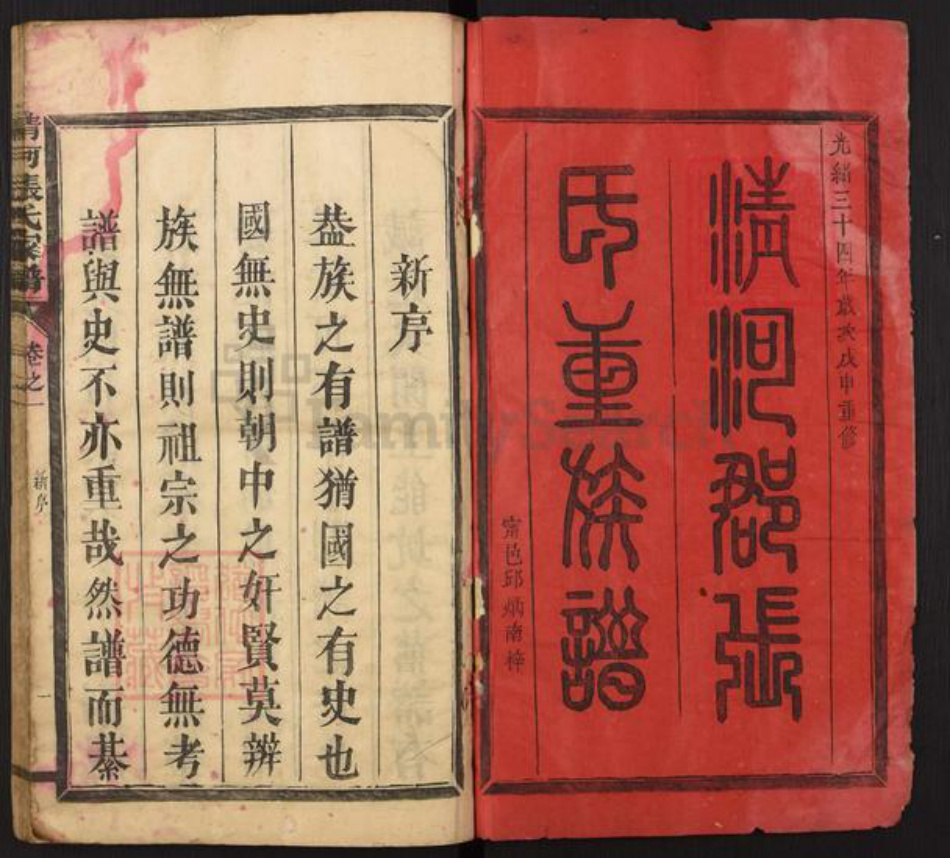 光緒三十四年歲次戊申重修
清河郡張
氏重族譜
甯邑邱炳南梓
新序
葢族之有譜猶國之有史也
國無史則朝中之奸賢莫辨
族無譜則祖宗之功德無考
譜與史不亦重哉然譜而綦
清河張氏家譜
卷之一
新序
一
FamilySearch